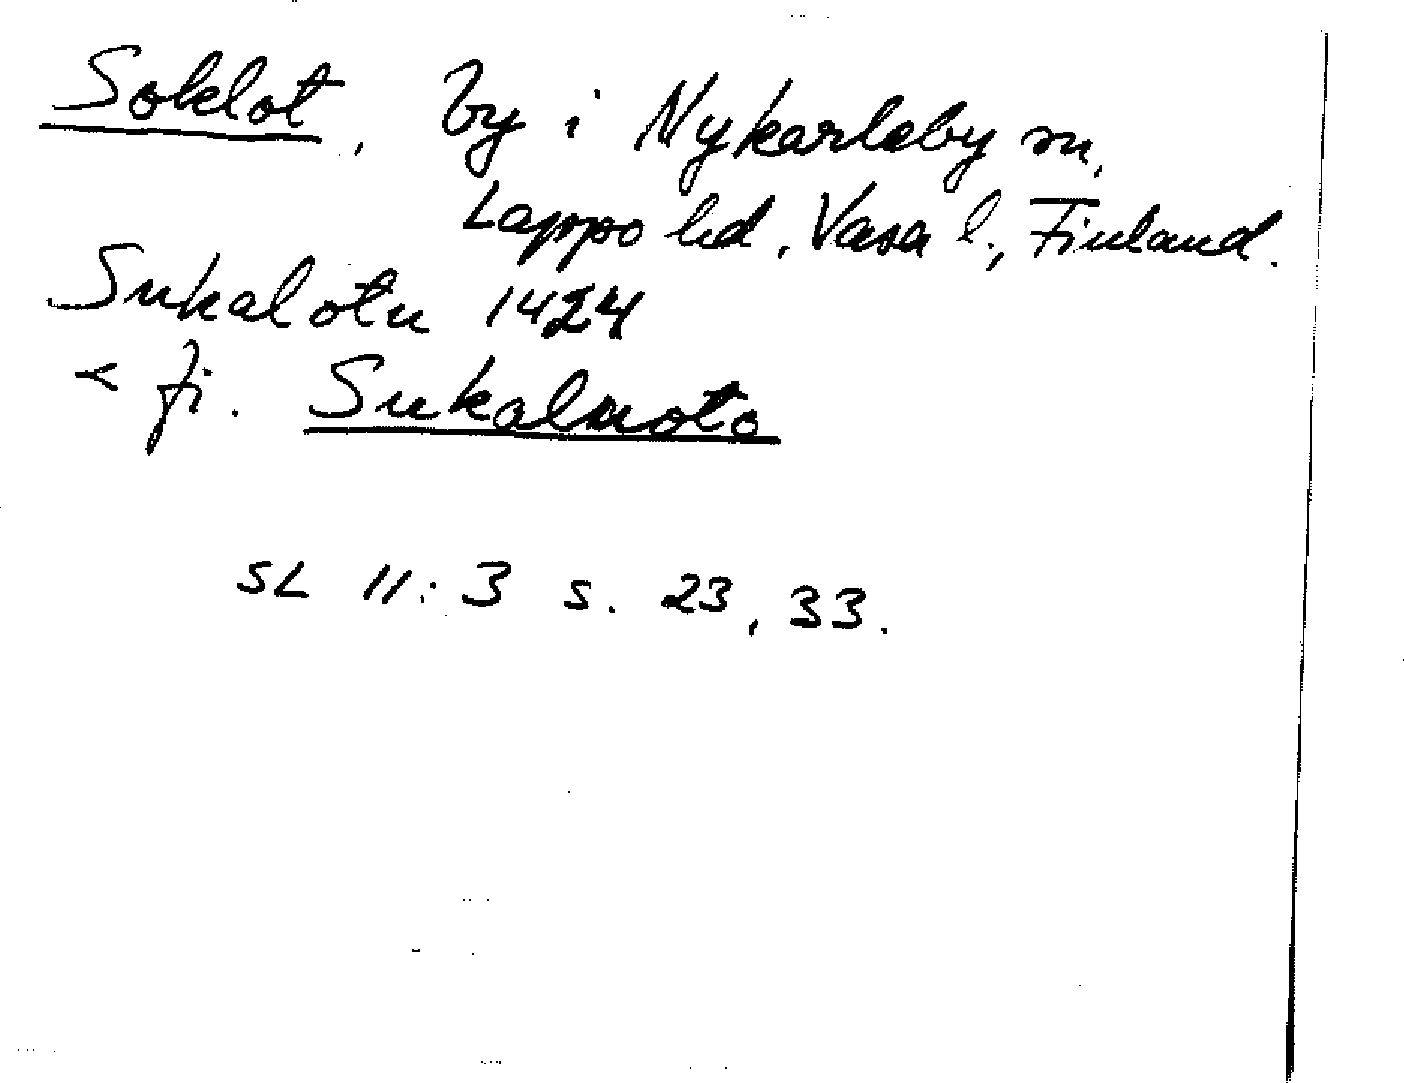 Soklot, by i Nykarleby sn,
Lappo hd, Vasa l., Finland.
Sukalotu 1424
< fi. Sukaluoto
SL 11:3 s. 23, 33.